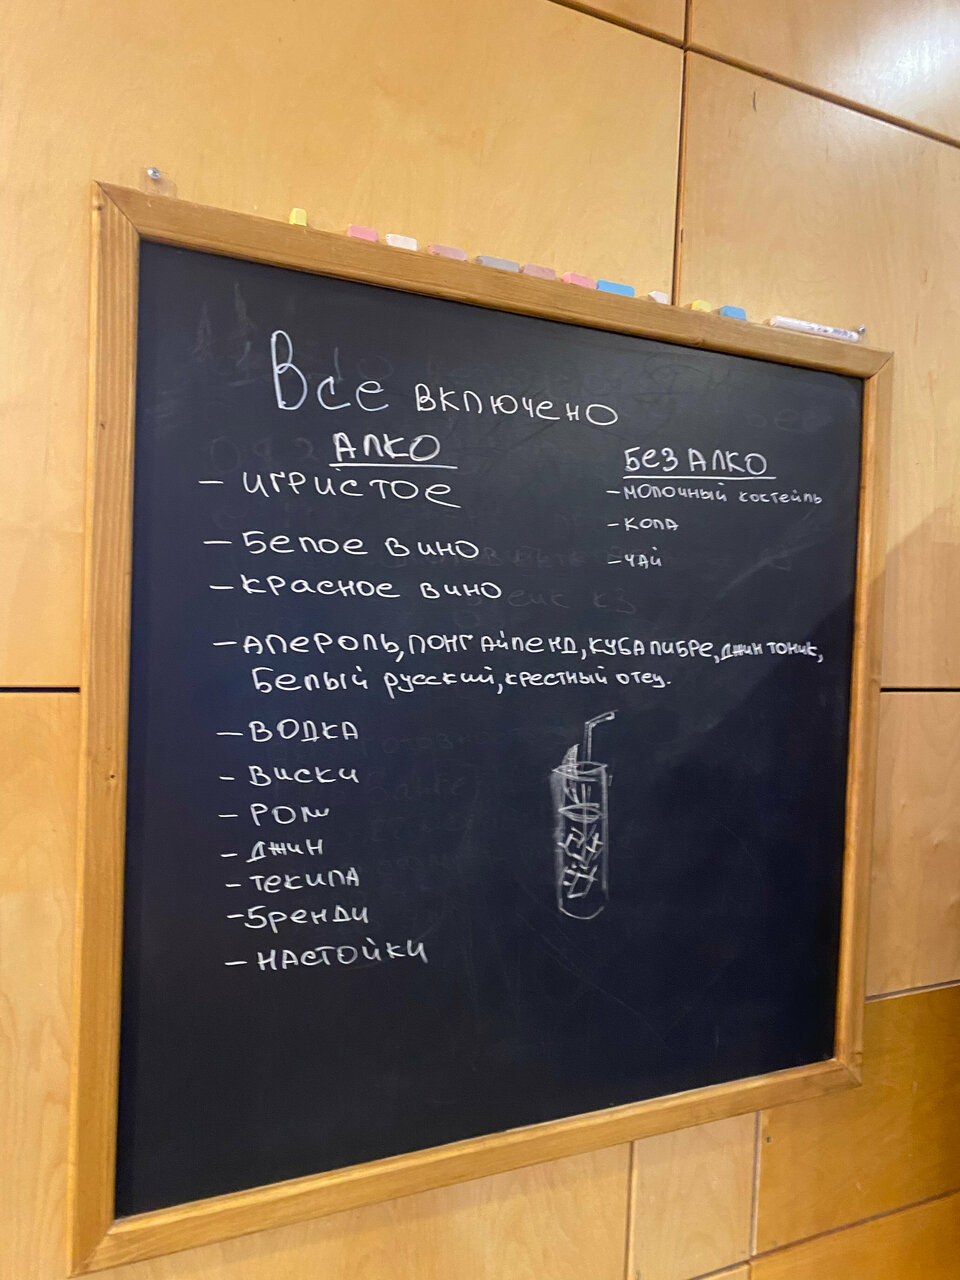 Все включено
АЛКО
- игристое
- Белое вино
- Красное вино
- Апероль, Лонг Айленд, Куба либре, Джин тоник,
Белый русский, крестный отец.
- Водка
- Виски
- Ром
- Джин
- Текила
- Бренди
- Настойки
БЕЗ АЛКО
- Молочный костейль
- Кола
- Чай